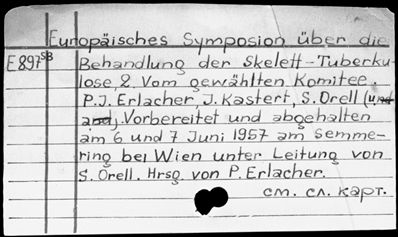 Europäisches Symposion über die
E897 SB
Behandlung der Skelett-Tuberku-
lose, 2. Vom gewählten Komitee.
P.J. Erlacher, J. Kastert, S. Orell (und
and). Vorbereitet und abgehalten
am 6 und 7 Juni 1957 am Semme-
ring bei Wien unter Leitung von
S. Orell. Hrsg von P. Erlacher.
см. сл. карт.